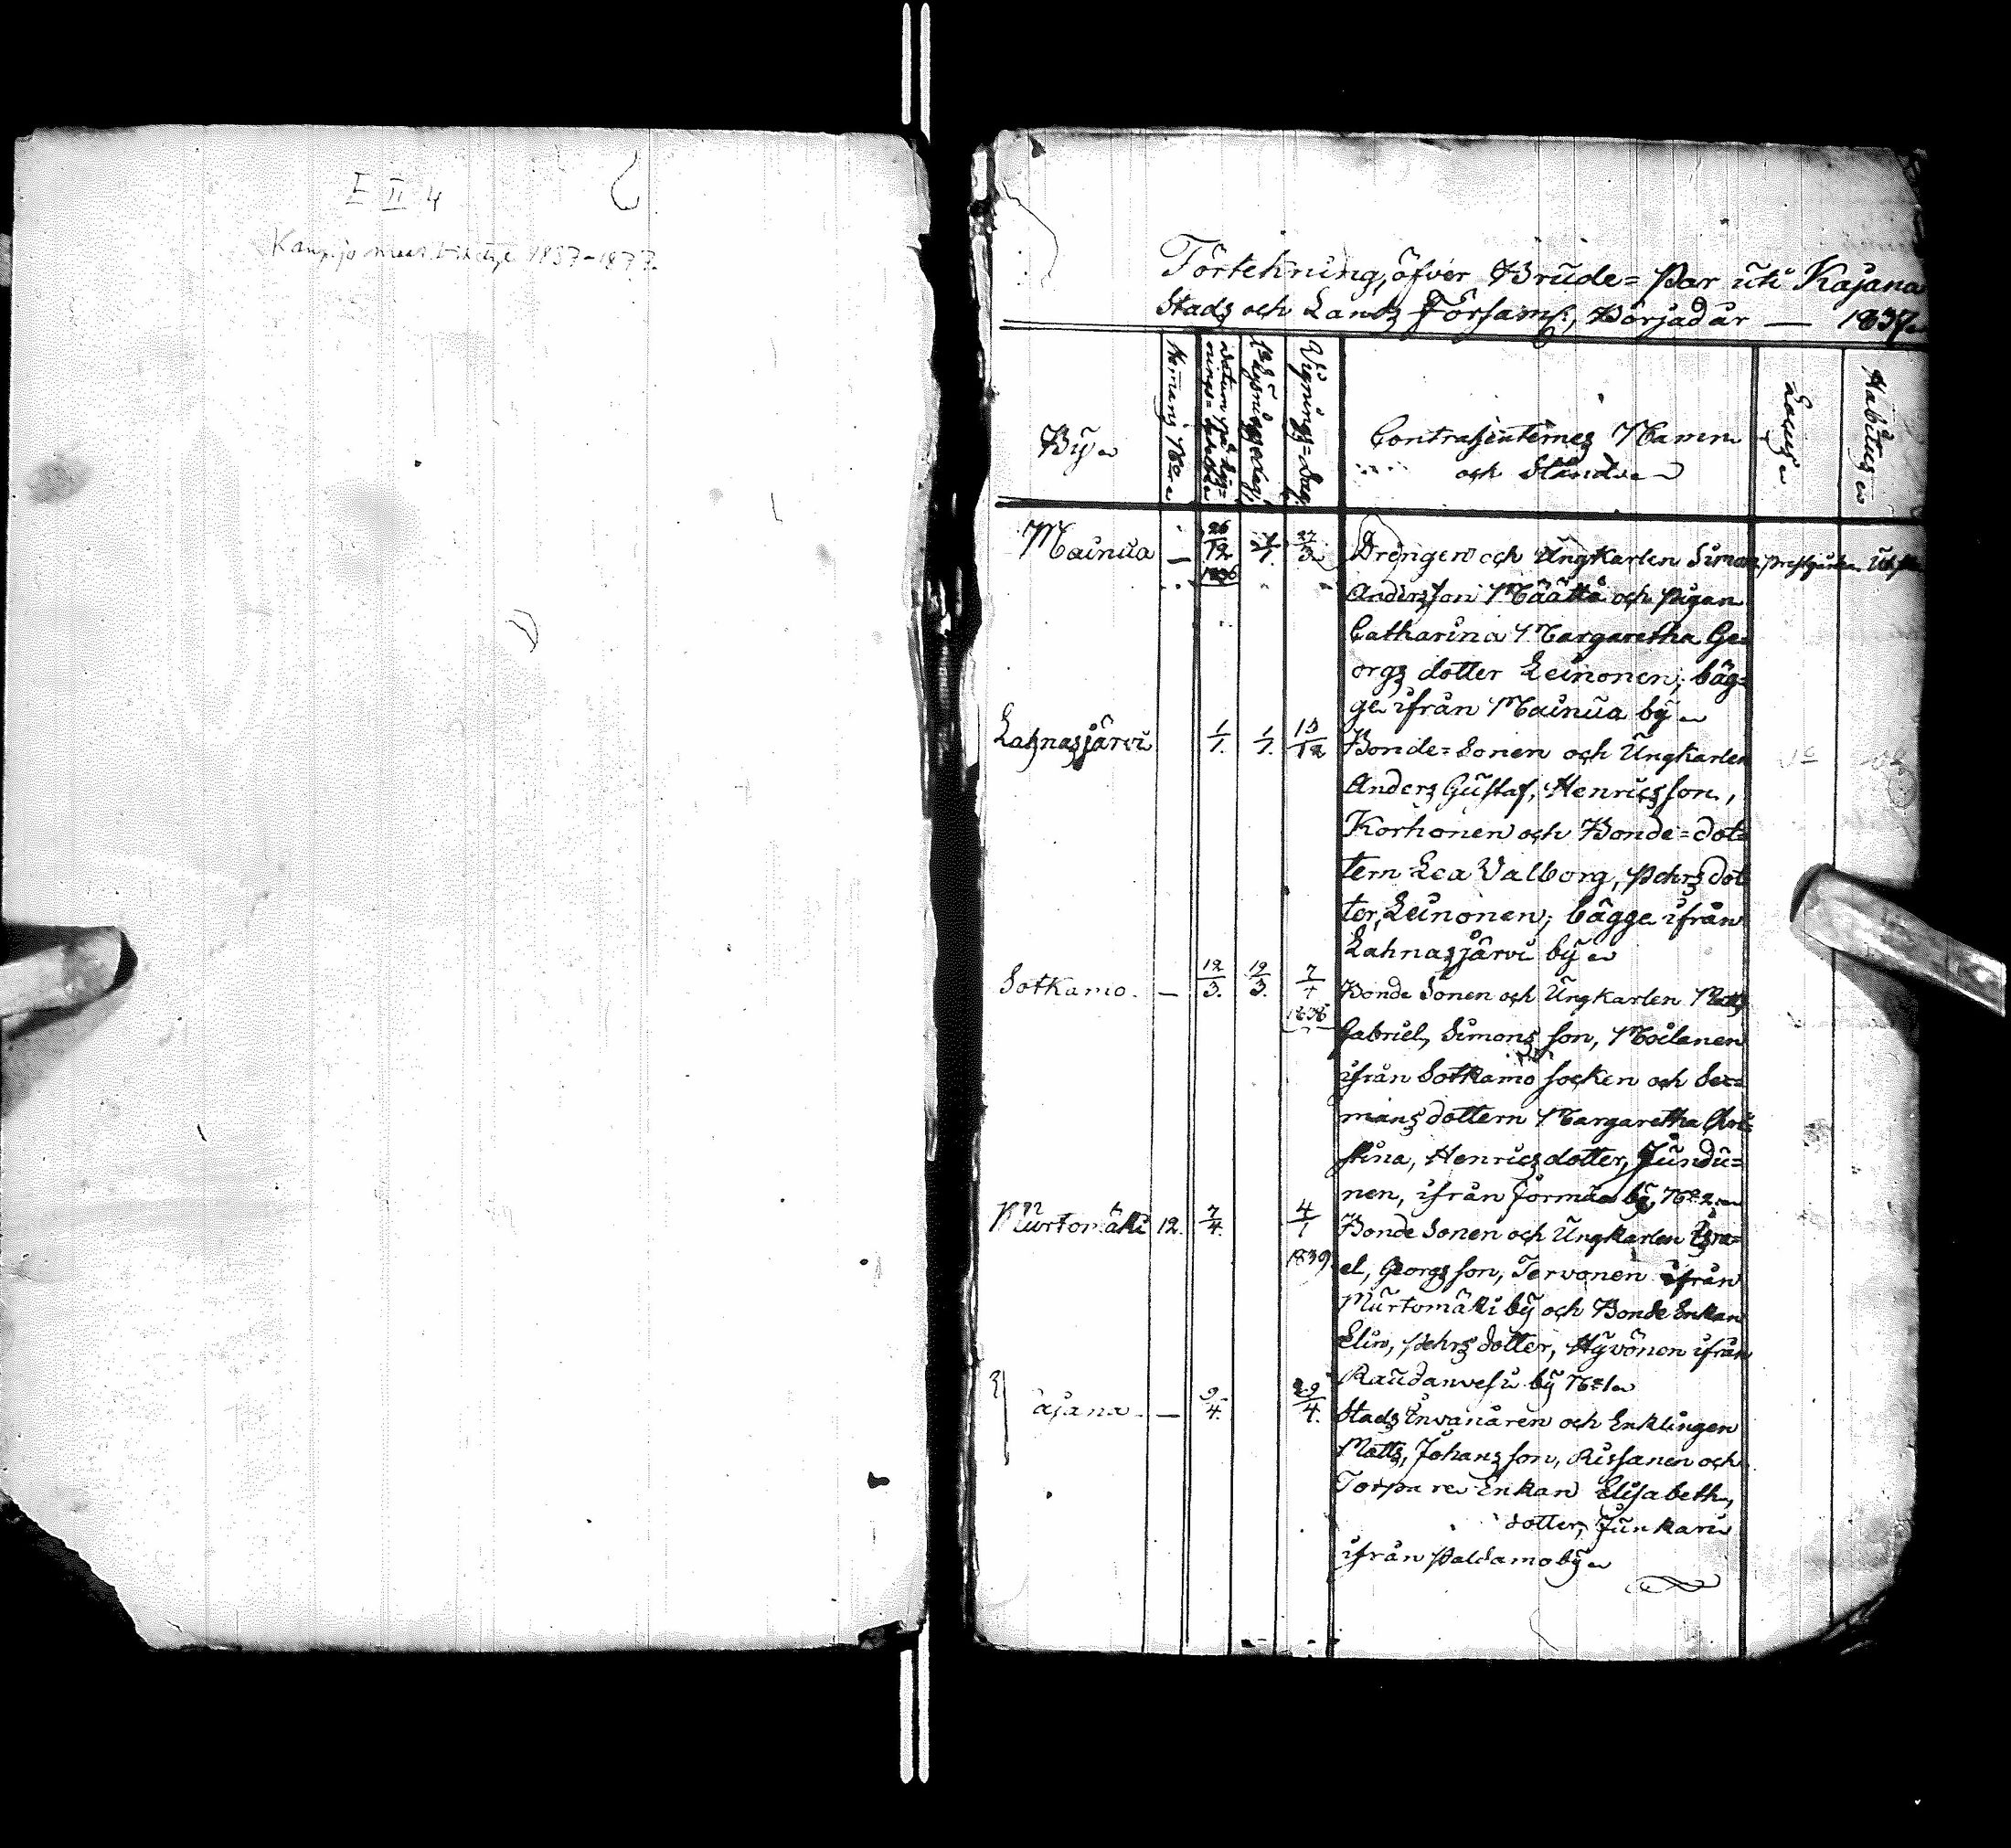 E II 4
1837-1877.
Förtekning, öfver Brude=Par uti Kajana
Stads och Lands Församl:, Börjad år — 1837
By
Hemans No
datum på lys=
nings=
1a Lysningsdag.
Vignings=Dag.
Contrahenternes Namn
och Stånd
Locus
Habitus
Mainua — 26/12 1836 1/1. 27/3 Drengen och Ungkarlen Simon Prestgården
Andersson Määttä och Pigan
Catharina Margaretha Ge=
orgs dotter Leinonen; båg=
ge ifrån Mainua by
Lahnasjärvi 1/1. 1/1. 13/12 Bonde=Sonen och Ungkarlen
Anders Gustaf, Henrics son,
Korhonen och Bonde=dot=
tern Lea Valborg, Pehrs dot
ter, Leinonen; bågge ifrån
Lahnasjärvi by
Sotkamo. — 12/3. 12/3. 7/1 1838 Bonde Sonen och Ungkarlen Matts
Gabriel, Simons son, Moilanen
ifrån Sotkamo socken och Sex=
mans dottern Margaretha Chri=
stina, Henrics dotter, Jundu=
nen, ifrån Jormua by, No 2
Murtomäki 12. 7/4. 4/1 1839 Bonde Sonen och Ungkarlen Isra=
el, Georgs son, Tervonen ifrån
Murtomäki by och Bonde Enkan
Elin, Pehrs dotter, Hyvönen ifrån
Raudanvesi by No 1
ajana — 9/4. 29/4. Stads Invånaren och Enklingen
Matts, Johans son, Rissanen och
Torpare Enkan Elisabeth,
dotter, Junkari
ifrån Paldamo by